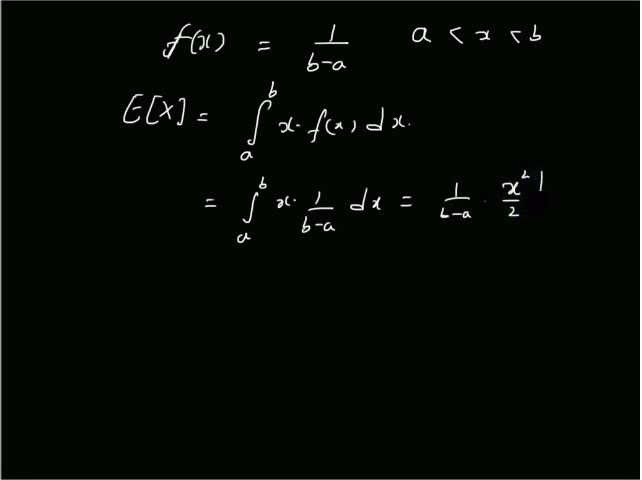 f(x) = 1/(b-a) a < x < b
E[X] = ∫_a^b x· f(x) dx.
= ∫_a^b x· 1/(b-a) dx = 1/(b-a) · x²/2 |